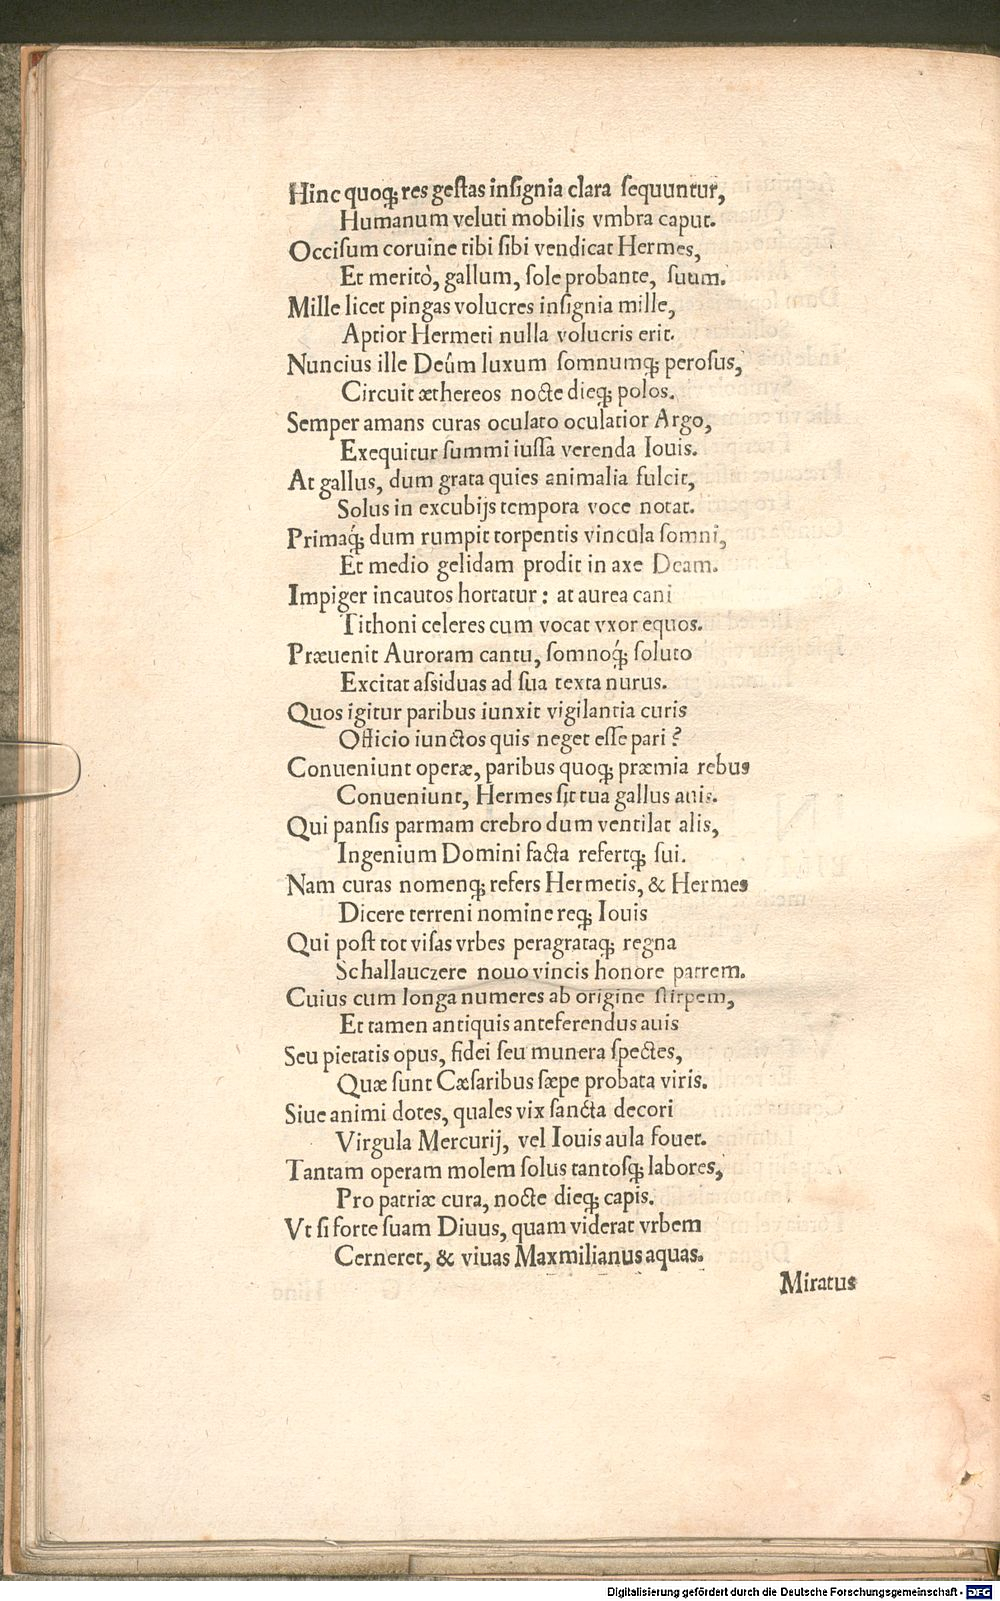 Hinc quoq; res gestas insignia clara sequuntur,
Humanum veluti mobilis vmbra caput.
Occisum coruine tibi sibi vendicat Hermes,
Et meritò, gallum, sole probante, suum.
Mille licet pingas volucres insignia mille,
Aptior Hermeti nulla volucris erit.
Nuncius ille Deûm luxum somnumq; perosus,
Circuit æthereos nocte dieq; polos.
Semper amans curas oculato oculatior Argo,
Exequitur summi iussa verenda Iouis.
At gallus, dum grata quies animalia fulcit,
Solus in excubijs tempora voce notat.
Primaq́; dum rumpit torpentis vincula somni,
Et medio gelidam prodit in axe Deam.
Impiger incautos hortatur: at aurea cani
Tithoni celeres cum vocat vxor equos.
Præuenit Auroram cantu, somnoq́; soluto
Excitat assiduas ad sua texta nurus.
Quos igitur paribus iunxit vigilantia curis
Officio iunctos quis neget esse pari?
Conueniunt operæ, paribus quoq; præmia rebus
Conueniunt, Hermes sit tua gallus auis.
Qui pansis parmam crebro dum ventilat alis,
Ingenium Domini facta refertq; sui.
Nam curas nomenq; refers Hermetis, & Hermes
Dicere terreni nomine req; Iouis
Qui post tot visas vrbes peragrataq; regna
Schallauczere nouo vincis honore patrem.
Cuius cum longa numeres ab origine stirpem,
Et tamen antiquis anteferendus auis
Seu pietatis opus, fidei seu munera spectes,
Quæ sunt Cæsaribus sæpe probata viris.
Siue animi dotes, quales vix sancta decori
Virgula Mercurij, vel Iouis aula fouet.
Tantam operam molem solus tantosq; labores,
Pro patriæ cura, nocte dieq; capis.
Vt si forte suam Diuus, quam viderat vrbem
Cerneret, & viuas Maxmilianus aquas.
Miratus
Digitalisierung gefördert durch die Deutsche Forschungsgemeinschaft - DFG